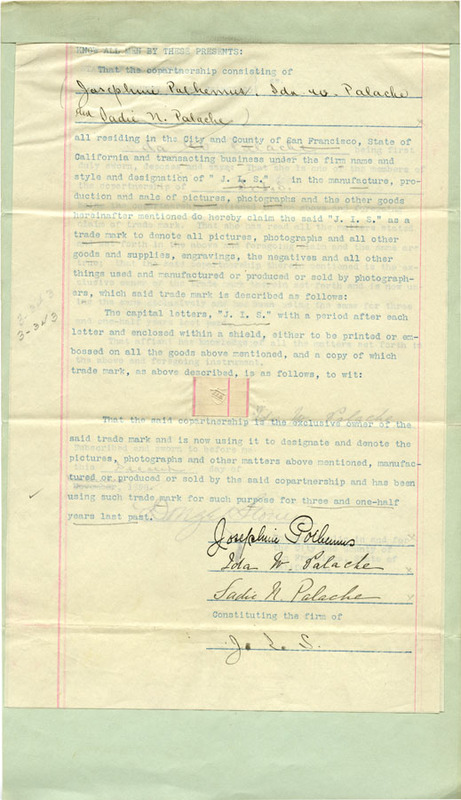 KNOW ALL MEN BY THESE PRESENTS:
That the copartnership consisting of
(Josephine Polhemus, Ida W. Palache
and Sadie N. Palache)
all residing in the City and County of San Francisco, State of
California and transacting business under the firm name and
style and designation of "J. I. S." in the manufacture, pro-
duction and sale of pictures, photographs and the other goods
hereinafter mentioned do hereby claim the said "J. I. S." as a
trade mark to denote all pictures, photographs and all other
goods and supplies, engravings, the negatives and all other
things used and manufactured or produced or sold by photograph-
ers, which said trade mark is described as follows:
The capital letters, "J. I. S." with a period after each
letter and enclosed within a shield, either to be printed or em-
bossed on all the goods above mentioned, and a copy of which
trade mark, as above described, is as follows, to wit:
That the said copartnership is the exclusive owner of the
said trade mark and is now using it to designate and denote the
pictures, photographs and other matters above mentioned, manufac-
tured or produced or sold by the said copartnership and has been
using such trade mark for such purpose for three and one-half
years last past.
Josephine Polhemus
Ida W. Palache
Sadie N. Palache
Constituting the firm of
J. I. S.